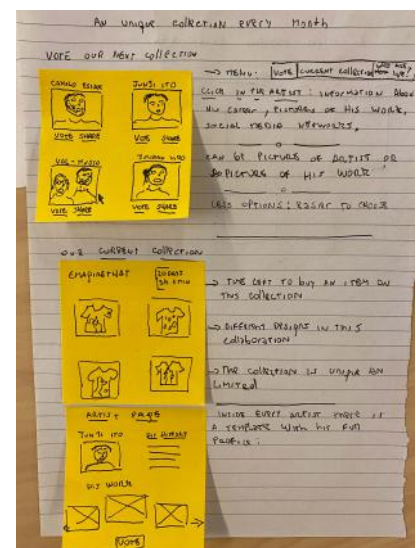 An unique collection every Month
Vote our next collection
CAMILO ESSAR
JUNJI ITO
VOTE SHARE
VOTE SHARE
VOTE SHARE
VOTE SHARE
→ MENU: VOTE CURRENT COLLECTION WHO ARE WE?
CLICK IN THE ARTIST: INFORMATION About
his career, PICTURES OF HIS WORK,
SOCIAL MEDIA NETWORKS.
CAN BE PICTURE OF ARTIST OR
PICTURE OF HIS WORK
LESS OPTIONS: EASIER TO CHOOSE
our CURRENT COLLECTION
→ TIME LEFT TO buy AN ITEM ON
THIS COLLECTION
→ DIFFERENT DESIGNS IN THIS
collaboration
→ THE COLLECTION IS UNIQUE AN
LIMITED
ARTIST PAGE
JUNJI ITO
HIS HISTORY
HIS WORK
VOTE
INSIDE EVERY ARTIST THERE IS
A TEMPLATE WITH his FULL
PROFILE: